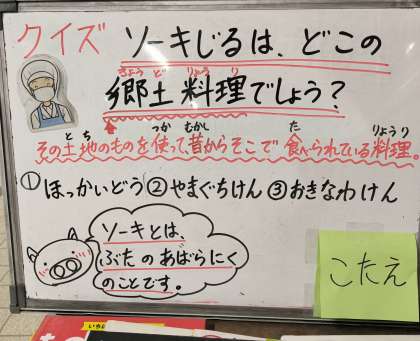 クイズ ソーキじるは、どこの
きょうど りょうり
郷土料理でしょう？
とち つか むかし た りょうり
その土地のものを使って、昔からそこで食べられている料理。
①ほっかいどう ②やまぐちけん ③おきなわけん
ソーキとは、
ぶたのあばらにく
のことです。
こたえ